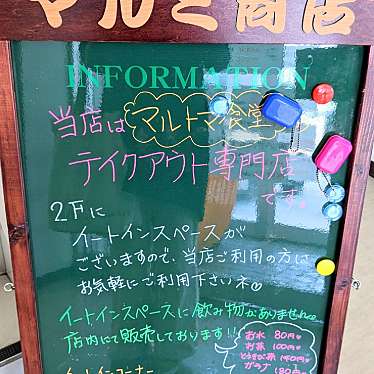 マルミ商店
INFORMATION
当店は マルトマ食堂
テイクアウト専門店
です。
2Fに
イートインスペースが
ございますので、当店ご利用の方は
お気軽にご利用下さいネ♡
イートインスペースに飲み物がありませんので
店内にて販売しております!!
お水 80円
お茶 100円
とうきび茶 140円
ガラナ 180円
イートインコーナー